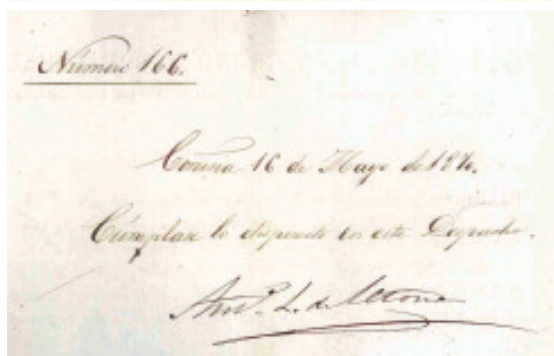 Número 166.
Coruña 16 de Mayo de 1870.
Cúmplase lo dispuesto en este Despacho.
Anto. L. de Letona